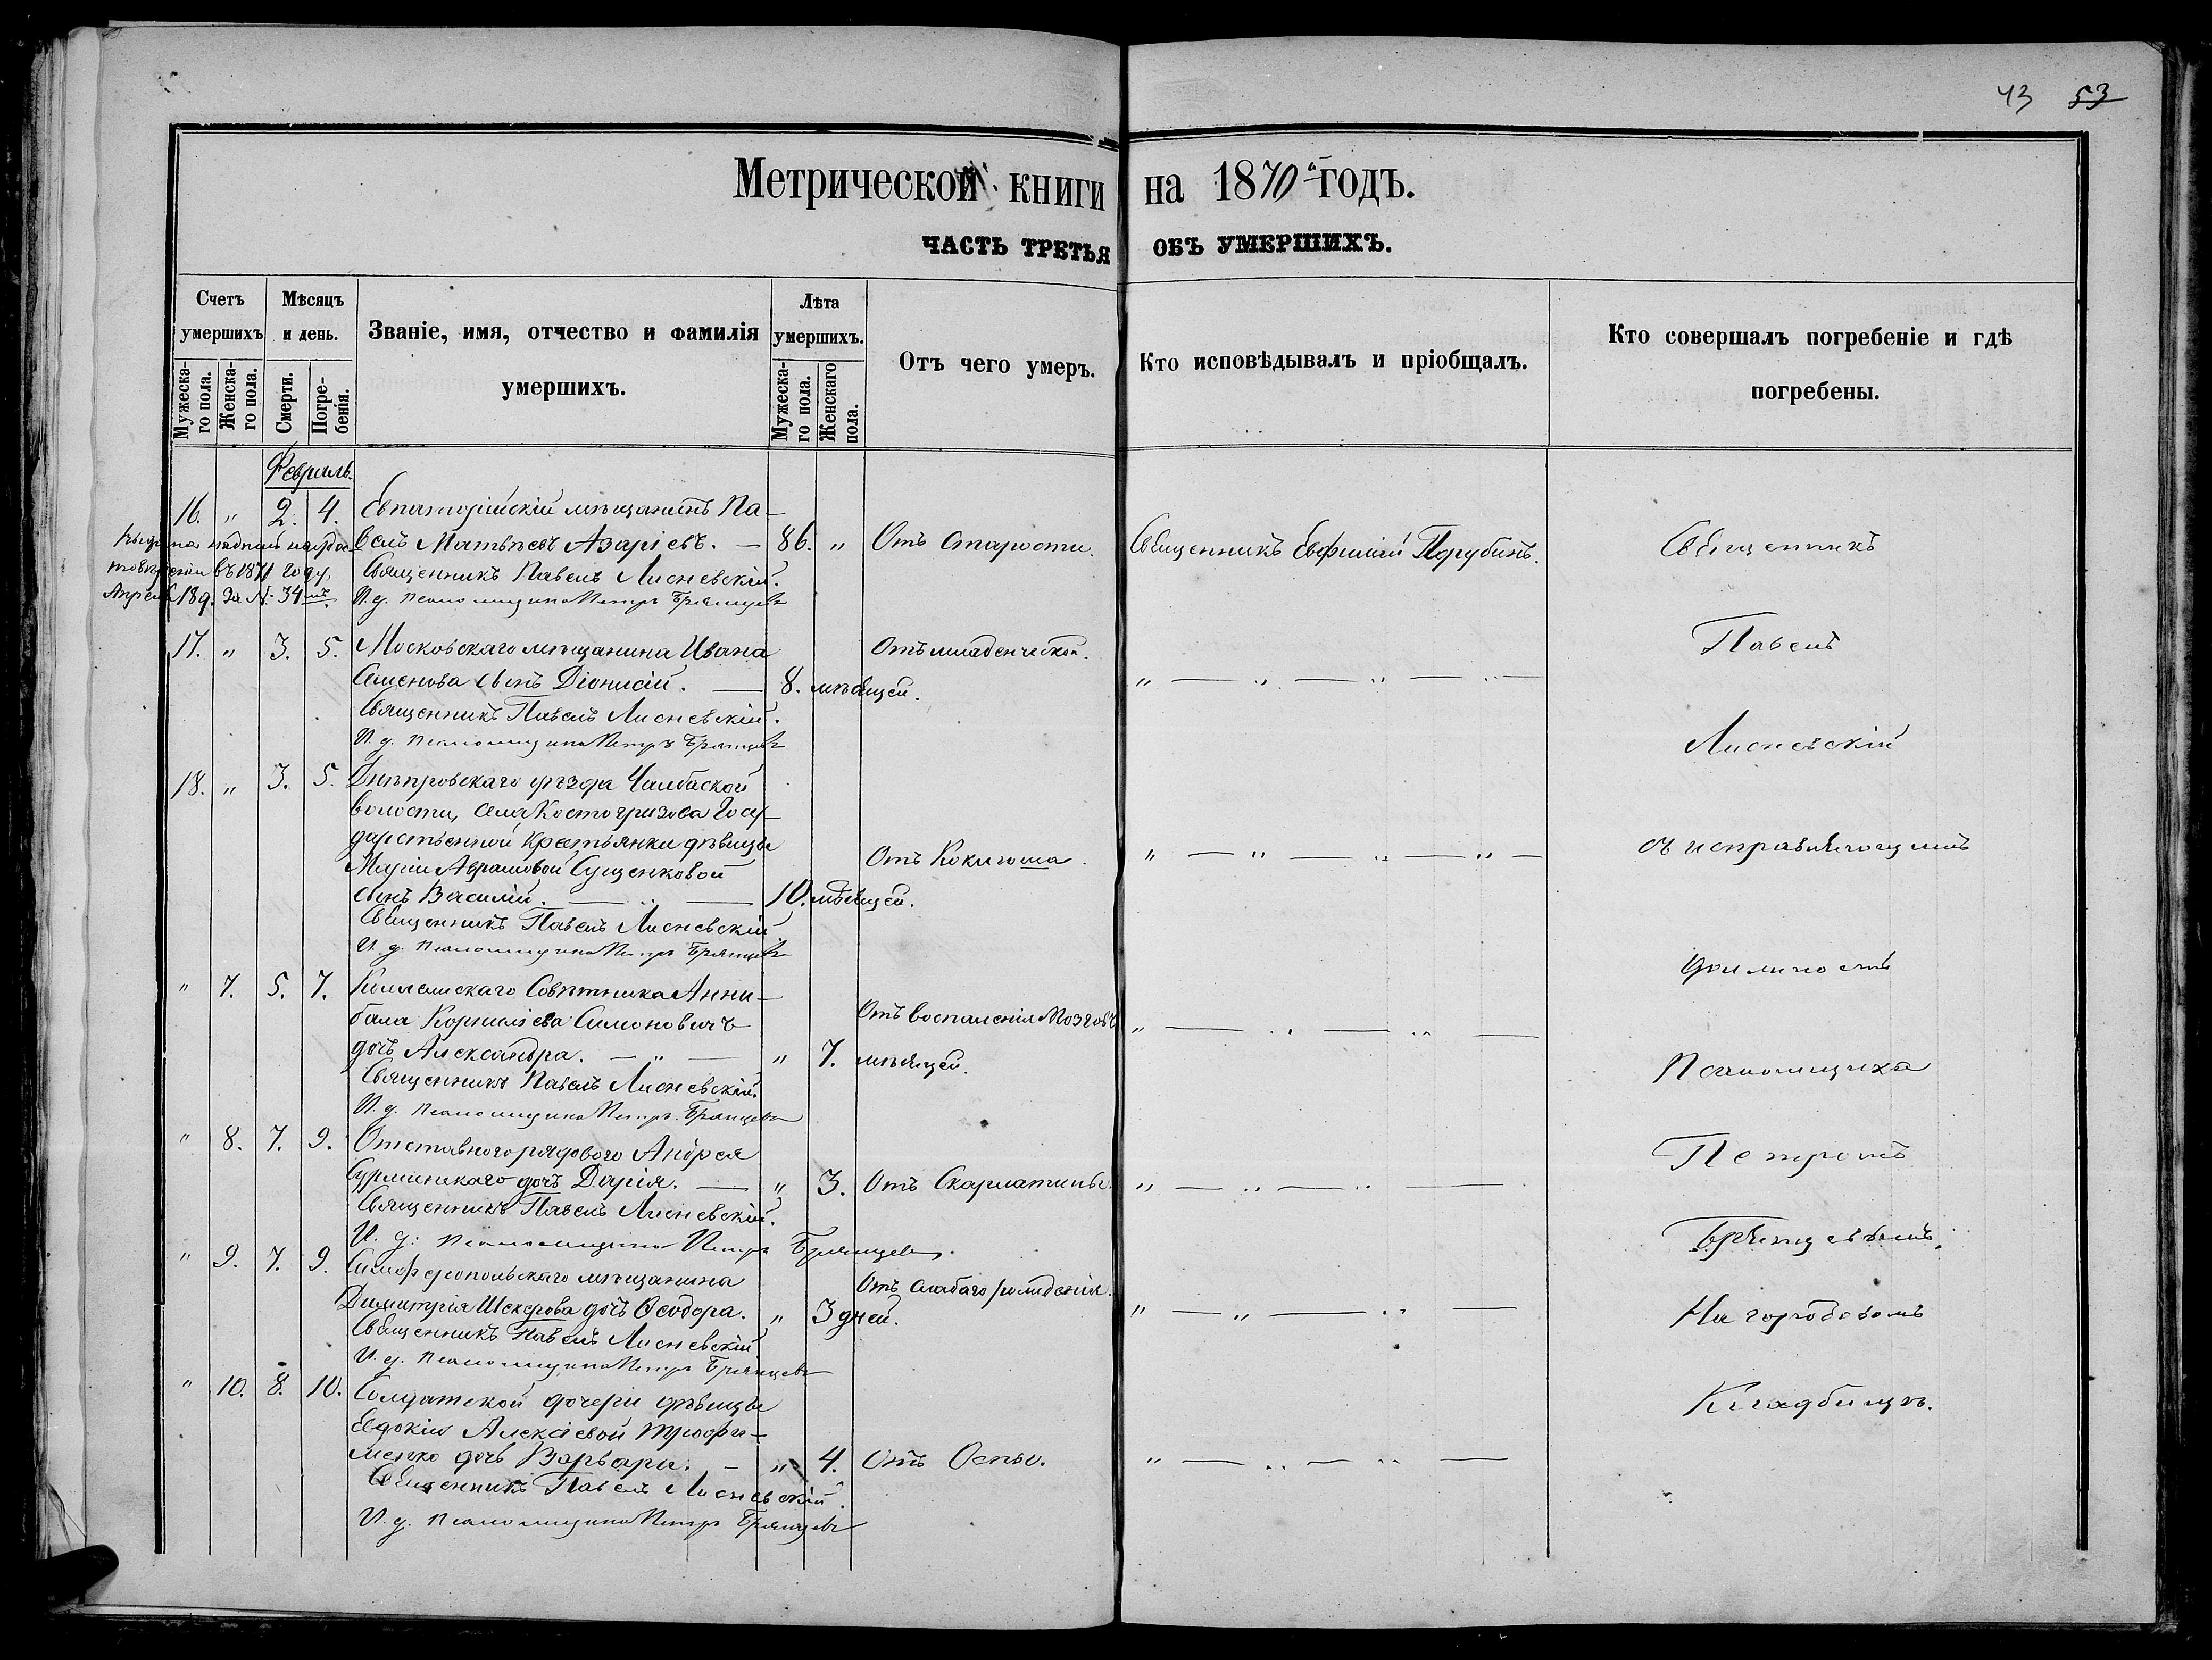 43 53
Метрической книги на 1870 годъ.
ЧАСТЬ ТРЕТЬЯ ОБЪ УМЕРШИХЪ.
Счетъ умершихъ
Мужеска-го пола.
Женска-го пола.
Мѣсяцъ и день.
Смерти.
Погре-бенія.
Званіе, имя, отчество и фамилія умершихъ.
Лѣта умершихъ.
Мужеска-го пола.
Женскаго пола.
Отъ чего умеръ.
Кто исповѣдывалъ и пріобщалъ.
Кто совершалъ погребеніе и гдѣ погребены.
Февраль.
16. " 2. 4. Евпаторійскій мѣщанинъ Па-
велъ Матвѣевъ Азаріевъ. — 86. " Отъ старости. Священникъ Евфимій
въ 1871 году,
Апрѣля 18 д. за № 34
Священникъ Павелъ Лисневскій.
И. д. псаломщика Петръ Брянцевъ
17. " 3. 5. Московскаго мѣщанина Ивана
Семенова сынъ Діонисій. — 8. мѣсяцей. Отъ младенческой. " — " — " — "
Священникъ Павелъ Лисневскій.
И. д. псаломщика Петръ Брянцевъ
18. " 3. 5. Днѣпровскаго уѣзда Чалбаской
волости, села Костогризова Госу-
дарственной крестьянки дѣвицы
Маріи Аврамовой Сущенковой
сынъ Василій. — " — 10. мѣсяцей. Отъ Коклюша. " — " — " — " —
Священникъ Павелъ Лисневскій
И. д. псаломщика Петръ Брянцевъ
" 7. 5. 7. Коллежскаго Совѣтника Анни-
бала Корниліева Симоновичъ
дочь Александра. — " — " 7. мѣсяцей. Отъ воспаленія мозговъ " — " — " —
Священникъ Павелъ Лисневскій.
И. д. псаломщика Петръ Брянцевъ
" 8. 7. 9. Отставного рядового Андрея
дочь Дарія. — " 3. Отъ Скарлатины. " — " — " —
Священникъ Павелъ Лисневскій.
И. д. псаломщика Петръ Брянцевъ.
" 9. 7. 9. Симферопольскаго мѣщанина
Димитрія дочь Ѳеодора. " 3 дней. Отъ слабаго рожденія. " — " — " —
Священникъ Павелъ Лисневскій
И. д. псаломщика Петръ Брянцевъ
" 10. 8. 10. Солдатской дочери дѣвицы
Евдокіи Алексіевой Трофи-
менко дочь Варвара. — " 4. Отъ Оспы. " — " — " —
Священникъ Павелъ Лисневскій.
И. д. псаломщика Петръ Брянцевъ
Священникъ
Павелъ
Лисневскій
съ исправляющимъ
должность
Псаломщика
Петромъ
Брянцевымъ.
На городовомъ
Кладбищѣ.